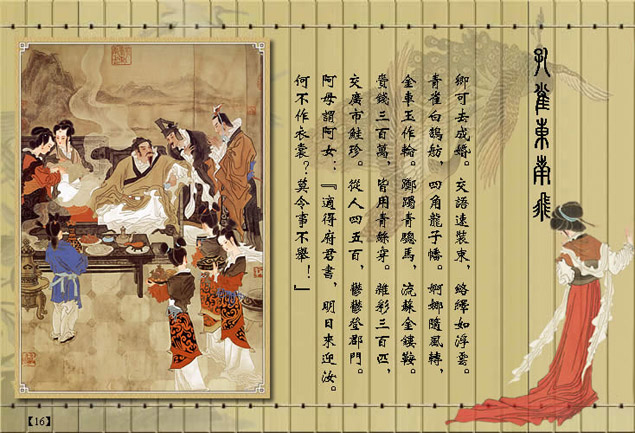 孔雀東南飛
卿可去成婚。交語速裝束，絡繹如浮雲。
青雀白鵠舫，四角龍子幡。婀娜隨風轉，
金車玉作輪。躑躅青驄馬，流蘇金鏤鞍。
賫錢三百萬，皆用青絲穿。雜彩三百匹，
交廣市鮭珍。從人四五百，鬱鬱登郡門。
阿母謂阿女：『適得府君書，明日來迎汝。
何不作衣裳？莫令事不舉！』
【16】